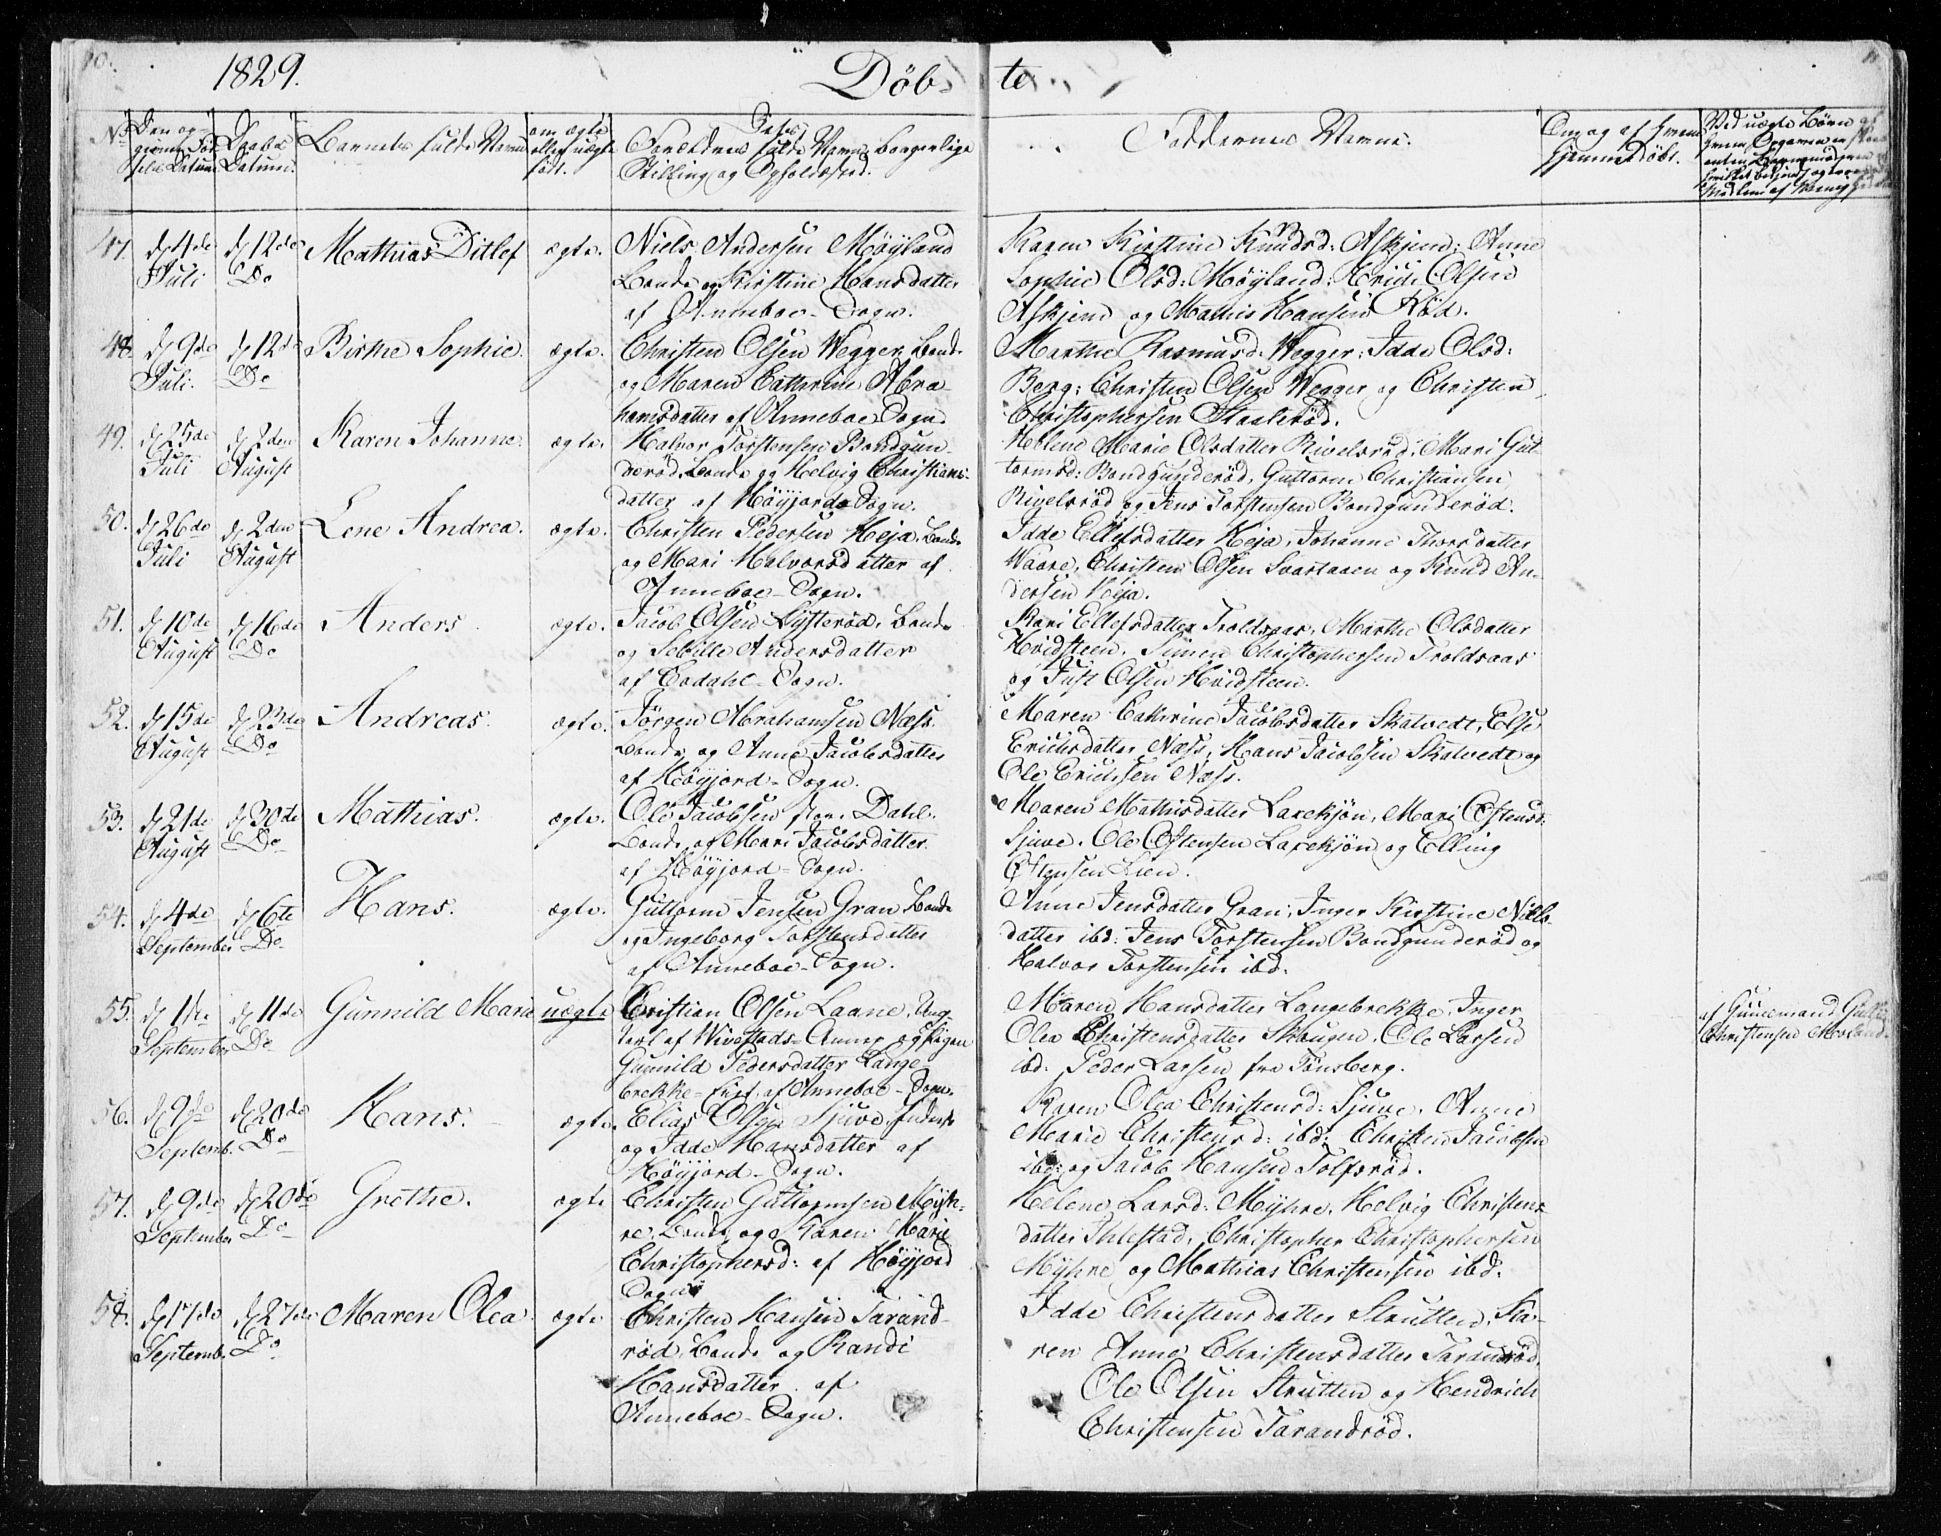 10.
1829.
Döb-
te
No
Den op-
givne Föd-
sels Datum
Daabs
Datum.
Barnets fulde Navn
om ægte
eller uægte
födt.
Forældres fulde Navn, borgerlige
Stilling og Opholdssted.
Faddernes Navne.
Om og af hvem
hjemmedöbt.
Ved uægte Börn af
47.
d. 4de
Juli
d. 12de
Do
Mathias Ditlef
ægte.
Niels Andersen Möyland
Bonde og Kirstine Hansdatter
af Anneboe-Sogn.
Karen Kirstine Knudsd: Askjend: Anne
Sophie Olsd: Möyland: Olsen
Askjend og Mathis Hansen Röd.
48.
d. 9de
Juli.
d. 12de
Do
Birthe Sophie.
ægte.
Christen Olsen Wegger, Bonde
og Maren Cathrine Abra
hamsdatter af Anneboe Sogn.
Marthe Rasmusd: Wegger: Idde Olsd:
Berg: Christen Olsen Wegger og Christen
Christophersen Staalröd.
49.
d. 25de
Juli
d. 2den
August
Karen Johanne.
ægte.
Halvor Torstensen Bondgun-
deröd, Bonde og Helvig Christians-
datter af Höyjords Sogn.
Helene Marie Olsdatter Rivelsröd, Mari Gut-
tormsd: Bondgunderöd, Guttorm Christiansen
Rivelsröd og Jens Torstensen Bondgunderöd.
50.
d. 26de
Juli
d. 2den
August
Lene Andrea.
ægte.
Christen Pedersen Heja, Bonde
og Mari Halvorsdatter af
Anneboe-Sogn.
Idde Ellefsdatter Heja, Johanne Thorsdatter
Waare, Christen Olsen Svartaaen og Knud An-
dersen Heja.
51.
d. 10de
August
d. 16de
Do
Anders
ægte.
Jacob Olsen Lysteröd, Bonde
og Sebille Andersdatter
af Sogn.
Kari Ellefsdatter Troldsaas, Marthe Olsdatter
Hvidsteen, Simen Christophersen Troldsaas
og Just Olsen Hvidsteen.
52.
d. 15de
August
d. 23de
Do
Andreas.
ægte.
Jörgen Abrahamsen Næss
Bonde og Anne Jacobsdatter
af Höyjord-Sogn.
Maren Cathrine Jacobsdatter Skalvedt, Else
Erichsdatter Næss, Hans Jacobsen Skalvedt og
Ole Erichsen Næss.
53.
d. 21de
August
d. 30de
Do
Mathias.
ægte.
Ole Jacobsen store Dahl.
Bonde og Mari Jacobsdatter
af Höyjord-Sogn.
Maren Mathisdatter Laxekjön, Mari Ostensd:
Sjuve. Ole Ostensen Laxekjön og Elling
Ostensen Lien.
54.
d. 4de
September
d. 6te
Do
Hans.
ægte.
Guttorm Jensen Gran Bonde
og Ingeborg Torstensdatter
af Anneboe-Sogn.
Anne Jensdatter Gran, Inger Kirstine Niels-
datter ibd: Jens Torstensen Bondgunderöd og
Halvor Torstensen ibd.
55.
d. 1ste
September
d. 11de
Do
Gunnild Maria
uægte
Cristian Olsen Laane, Ung-
karl af Wivestads-Annex og Pigen
Gunnild Pedersdatter Lange-
brekke af Anneboe-Sogn.
Maren Hansdatter Langebrekke, Inger
Olea Christensdatter Skaugen. Ole Larsen
ibd: Peder Larsen fra Tönsberg.
Christensen
56.
d. 9de
Septemb.
d. 20de
Do
Hans.
ægte.
Elias Olsen Sjuve
og Idde Hansdatter af
Höyjord-Sogn.
Karen Olea Christensd: Sjuve. Anne
Marie Christensd: ibd: Christen Jacobsen
ibd: og Jacob Hansen Tolfsröd.
57.
d. 9de
September
d. 20de
Do
Grethe.
ægte
Christen Guttormsen Myh-
re, Bonde og Karen Marie
Christophersd: af Höyjord
Sogn
Helene Larsd: Myhre, Helvig Christens
datter Ihlestad, Christopher Christophersen
Myhre og Mathias Christensen ibd:
58.
d. 17de
Septemb.
d. 27de
Do
Maren Olea
ægte
Christen Hansen Tarand-
röd, Bonde og Randi
Hansdatter af
Anneboe-Sogn.
Idde Christensdatter Strutten, Ka-
ren Anne Christensdatter Tarandröd
Ole Olsen Strutten og Hendrich
Christensen Tarandröd.